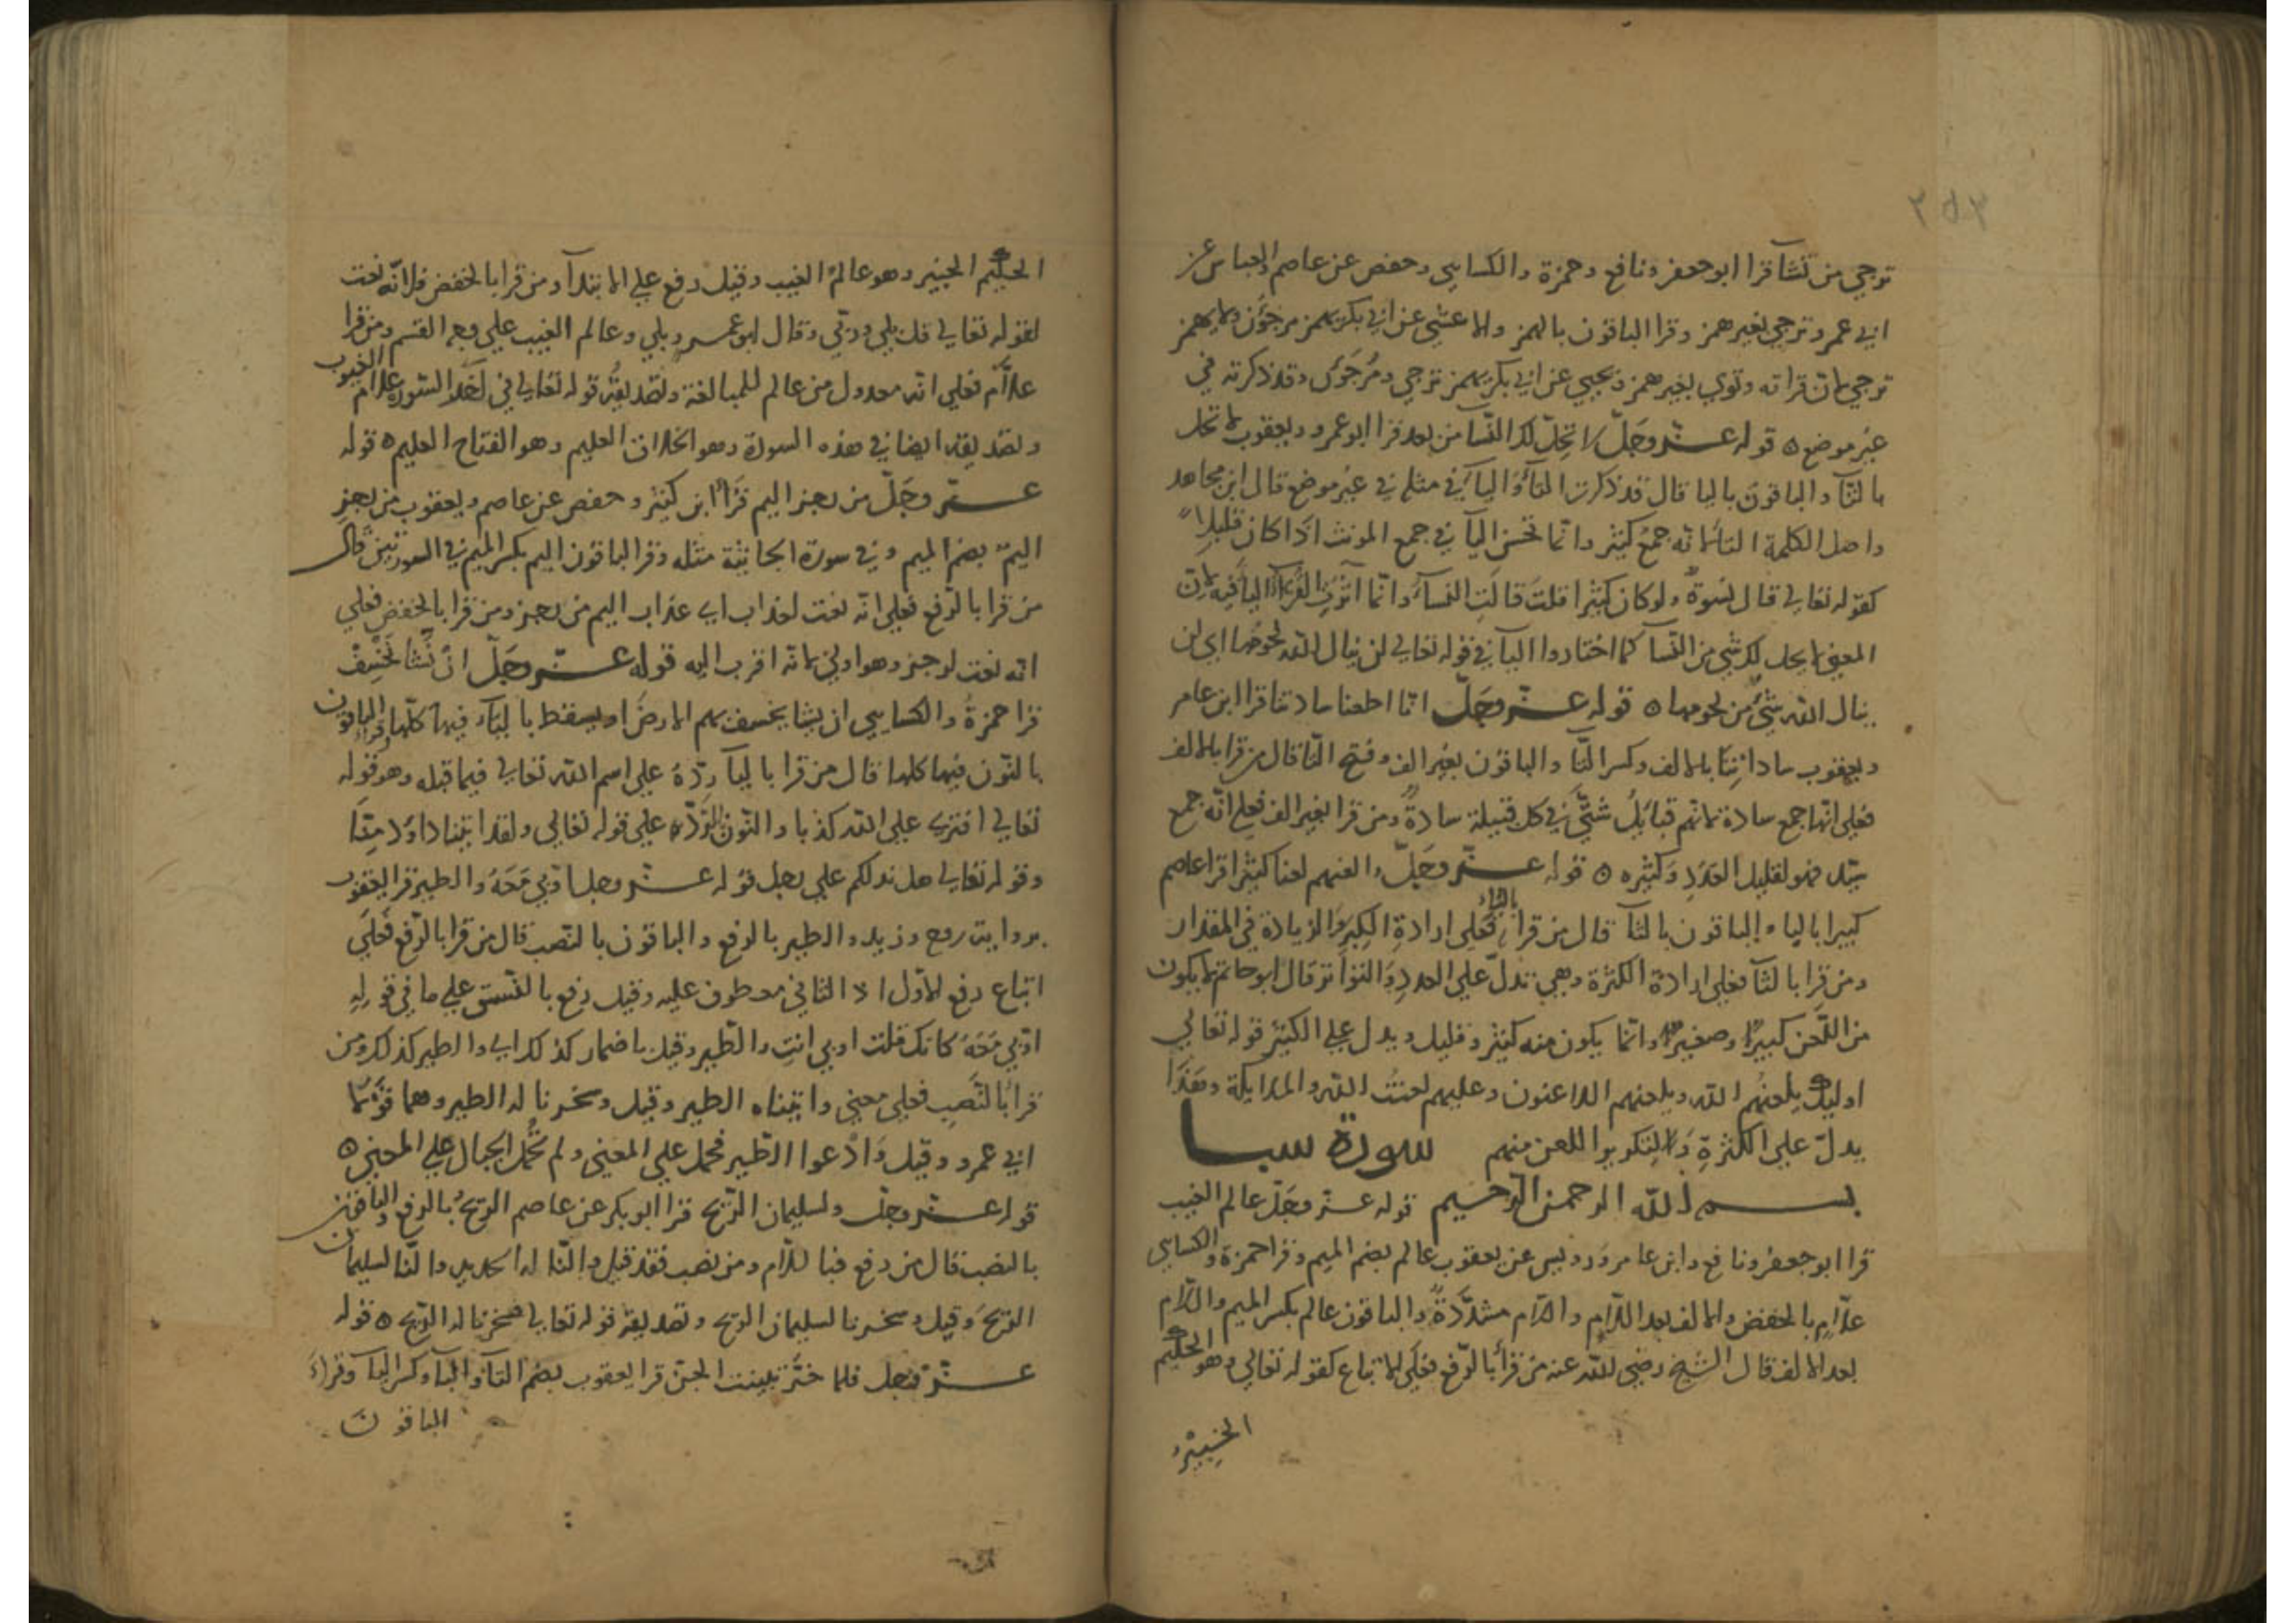 ترجي من تشآ قرا ابو جعفر ونافع وحمزة والكسايي وحفص عن عاصم والعباس عن
ابي عمرو ترجي بغير همز وقرا الباقون بالهمز والاعشي عن ابي بكر يهمز مرجَؤن ولا يهمز
ترجي لان قراته وتوي بغير همز ويحيي عن ابي بكر يهمز ترجي ومُرجَون وقد ذكرته في
غير موضع ه قوله عــز وجَلّ لا تحِلّ لك النّسآ من بعد قرا ابو عمرو ويعقوب لا تحل
بالتآ والباقون باليا قال قد ذكرت التآ واليآ في مثله في غير موضع قال ابن مجاهد
واصل الكلمة التا لانه جمعٌ كثير وانما تحسن اليآ في جمع المونث اذا كان قليلا
كقوله تعالي قال نسوةٌ ولو كان كثيرا قلتَ قالَتِ النسآءُ وانما آثرت القرآء اليا فيه لان
المعني لا يحل لك شي من النّسآ كما اختاروا اليآ في قوله تعالي لن ينال الله لحومُها اي لن
ينال الله شيٌ من لحومها ه قوله عــز وجَلّ انا اطعنا سادتنا قرا ابن عامر
ويعقوب ساداتِنا بالالف وكسر التّا والباقون بغير الف وفتح التّا قال من قرا بالالف
فعلي انّها جمع سادة لانهم قبائِلُ شتّي في كل قبيلة سادةٌ ومن قرا بغير الف فعلي انّه جمع
سيّد فهو لقليل العَدَدِ وَكثيره ه قوله عــز وجَلّ والعنهم لعنا كثيرا قرا عاصم
كبيرا بالباء والباقون بالثآ قال من قرا بالباء فعلي ارادةِ الكِبر والزيادة في المقدار
ومن قرا بالثآ فعلي ارادة الكثرة وهي تدلّ علي العددِ والتواتر قال ابو حاتم لا يكون
من اللّعن كبيرٌ وصغيرٌ وانما يكون منه كثير وقليل ويدل علي الكثير قوله تعالي
اوليك يلعنهُم الله ويلعنهم اللاعنون وعليهم لعنتُ الله والملايكة وهَذا
يدلّ علي الكثرةِ وَالتكرير اللعن منهم سورة سبــا
بســـم الله الرحمن الرحيم قوله عــز وجَلّ عالم الغيب
قرا ابو جعفر ونافع وابن عامر ورويس عن يعقوب عالم بضم الميم وقرا حمزة والكسايي
علّامِ بالخفض والالف بعد اللّام واللام مشدّدةٌ والباقون عالم بكسر الميم واللام
بعد الالف قال الشيخ رضي الله عنه من قرأ بالرّفع فعلي الاتباع كقوله تعالي وهو الحكيم
الخبيرُ
الحكيم الخبير وهو عالمُ الغيب وقيل رفع علي الابتدآ ومن قرا بالخفض فلانّه نعت
لقوله تعالي قل بلي وربّي وقال ابو عمرو بلي وعالم الغيب علي وجه القسم ومن قرا
علّام فعلي انه معدول من عالم للمبالغة وتصديقُه قوله تعالي في آخر السّورة علام الغيوب
وتصديقه ايضا في هذه السورة وهو الخلاق العليم وهو الفتاح العليم ه قوله
عــز وجَلّ من رجز اليم قرأ ابن كثير وحفص عن عاصم ويعقوب من رجزٍ
اليمٌ بضم الميم وفي سورة الجاثية مثله وقرا الباقون اليم بكسر الميم في السورتين قال
من قرا بالرّفع فعلي انه نعت لعذاب اي عذاب اليم من رجز ومن قرا بالخفض فعلي
انه نعت لرجز وهو اولي لانّه اقرب اليه قوله عــز وجَلّ ان نّشا نَخسِفْ
قرا حمزةُ والكسايي ان يشا يخسف بهم الارضَ او يسقط باليآء فيها كلّها وقرا الباقون
بالنّون فيها كلها قال من قرا باليآ رِدّهُ علي اسم الله تعالي فيما قبله وهو قوله
تعالي افتري علي الله كذبا والنّون للرّدّ علي قوله تعالي ولقد اتينا داوُد مِنّا
وقوله تعالي هل ندلكم علي رجل قوله عــز وجل اوّبي مَعَهُ والطير قرا يعقوب
بروايت روح وزيد والطير بالرفع والباقون بالنّصب قال من قرا بالرّفع فعَلي
اتباع رفع الاوّل اذ الثاني معطوف عليه وقيل رفع بالنّسق علي ما في قوله
اوّبي مَعَهُ كانك قلت اوبي انتِ والطّير وقيل باضمار كذلك اي والطير كذلك ومن
قرا بالنَصِب فعلي معني واتيناه الطير وقيل وسخرنا له الطير وهما قولا
ابي عمرو وقيل وَادْعوا الطّير فحمل علي المعني ولم تُحْمل الجبال علي المعني ه
قوله عــز وجل ولسليمان الرّيح قرا ابو بكر عن عاصم الريحُ بالرفع والباقون
بالنصب قال من رفع فبا للّام ومن نصب فقد قيل والنّا له الحديد والنّا لسليمان
الريحَ وقيل وسخرنا لسليمان الريح وتصديقه قوله تعالي فسخرنا له الرّيح ه قوله
عــز وجل فلما خرَّ تبينت الجن قرا يعقوب بضم التآ والبآ وكسر اليآ وقراءَ
الباقونَ